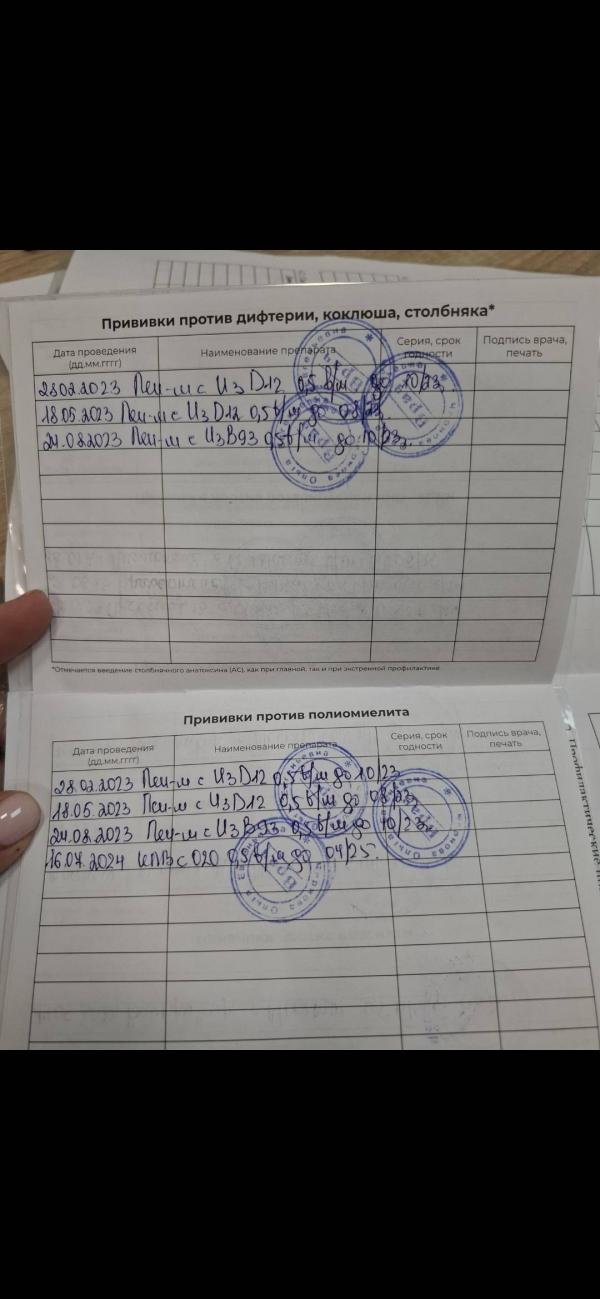 Прививки против дифтерии, коклюша, столбняка*
Дата проведения (дд.мм.гггг) Наименование препарата Серия, срок годности Подпись врача, печать
28.02.2023 Пен-м с U3D12 0,5 в/м до 10/23
18.05.2023 Пен-м с U3D12 0,5 в/м до 08/23
24.08.2023 Пен-м с U3B93 0,5 в/м до 10/23г.
*Отмечается введение столбнячного анатоксина (АС), как при плановой, так и при экстренной профилактике
Прививки против полиомиелита
Дата проведения (дд.мм.гггг) Наименование препарата Серия, срок годности Подпись врача, печать
28.02.2023 Пен-м с U3D12 0,5 в/м до 10/23
18.05.2023 Пен-м с U3D12 0,5 в/м до 08/23
24.08.2023 Пен-м с U3B93 0,5 в/м до 10/23г.
16.07.2024 ИПВ с 020 0,5 в/м до 04/25.
Врач
Ольга